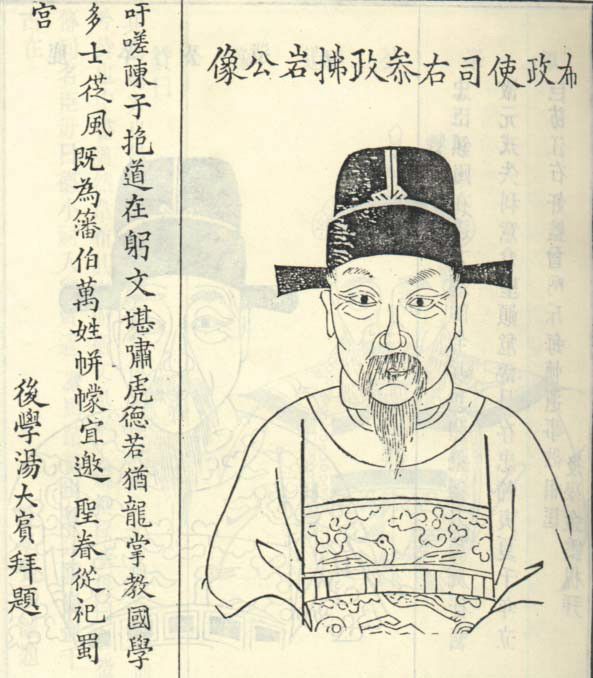 布政使司右叅政拂岩公像
吁嗟陳子抱道在躬文堪嘯虎德若猶龍掌教國學
多士從風既為籓伯萬姓帡幪宜邀聖眷從祀蜀
宮
後學湯大賓拜題